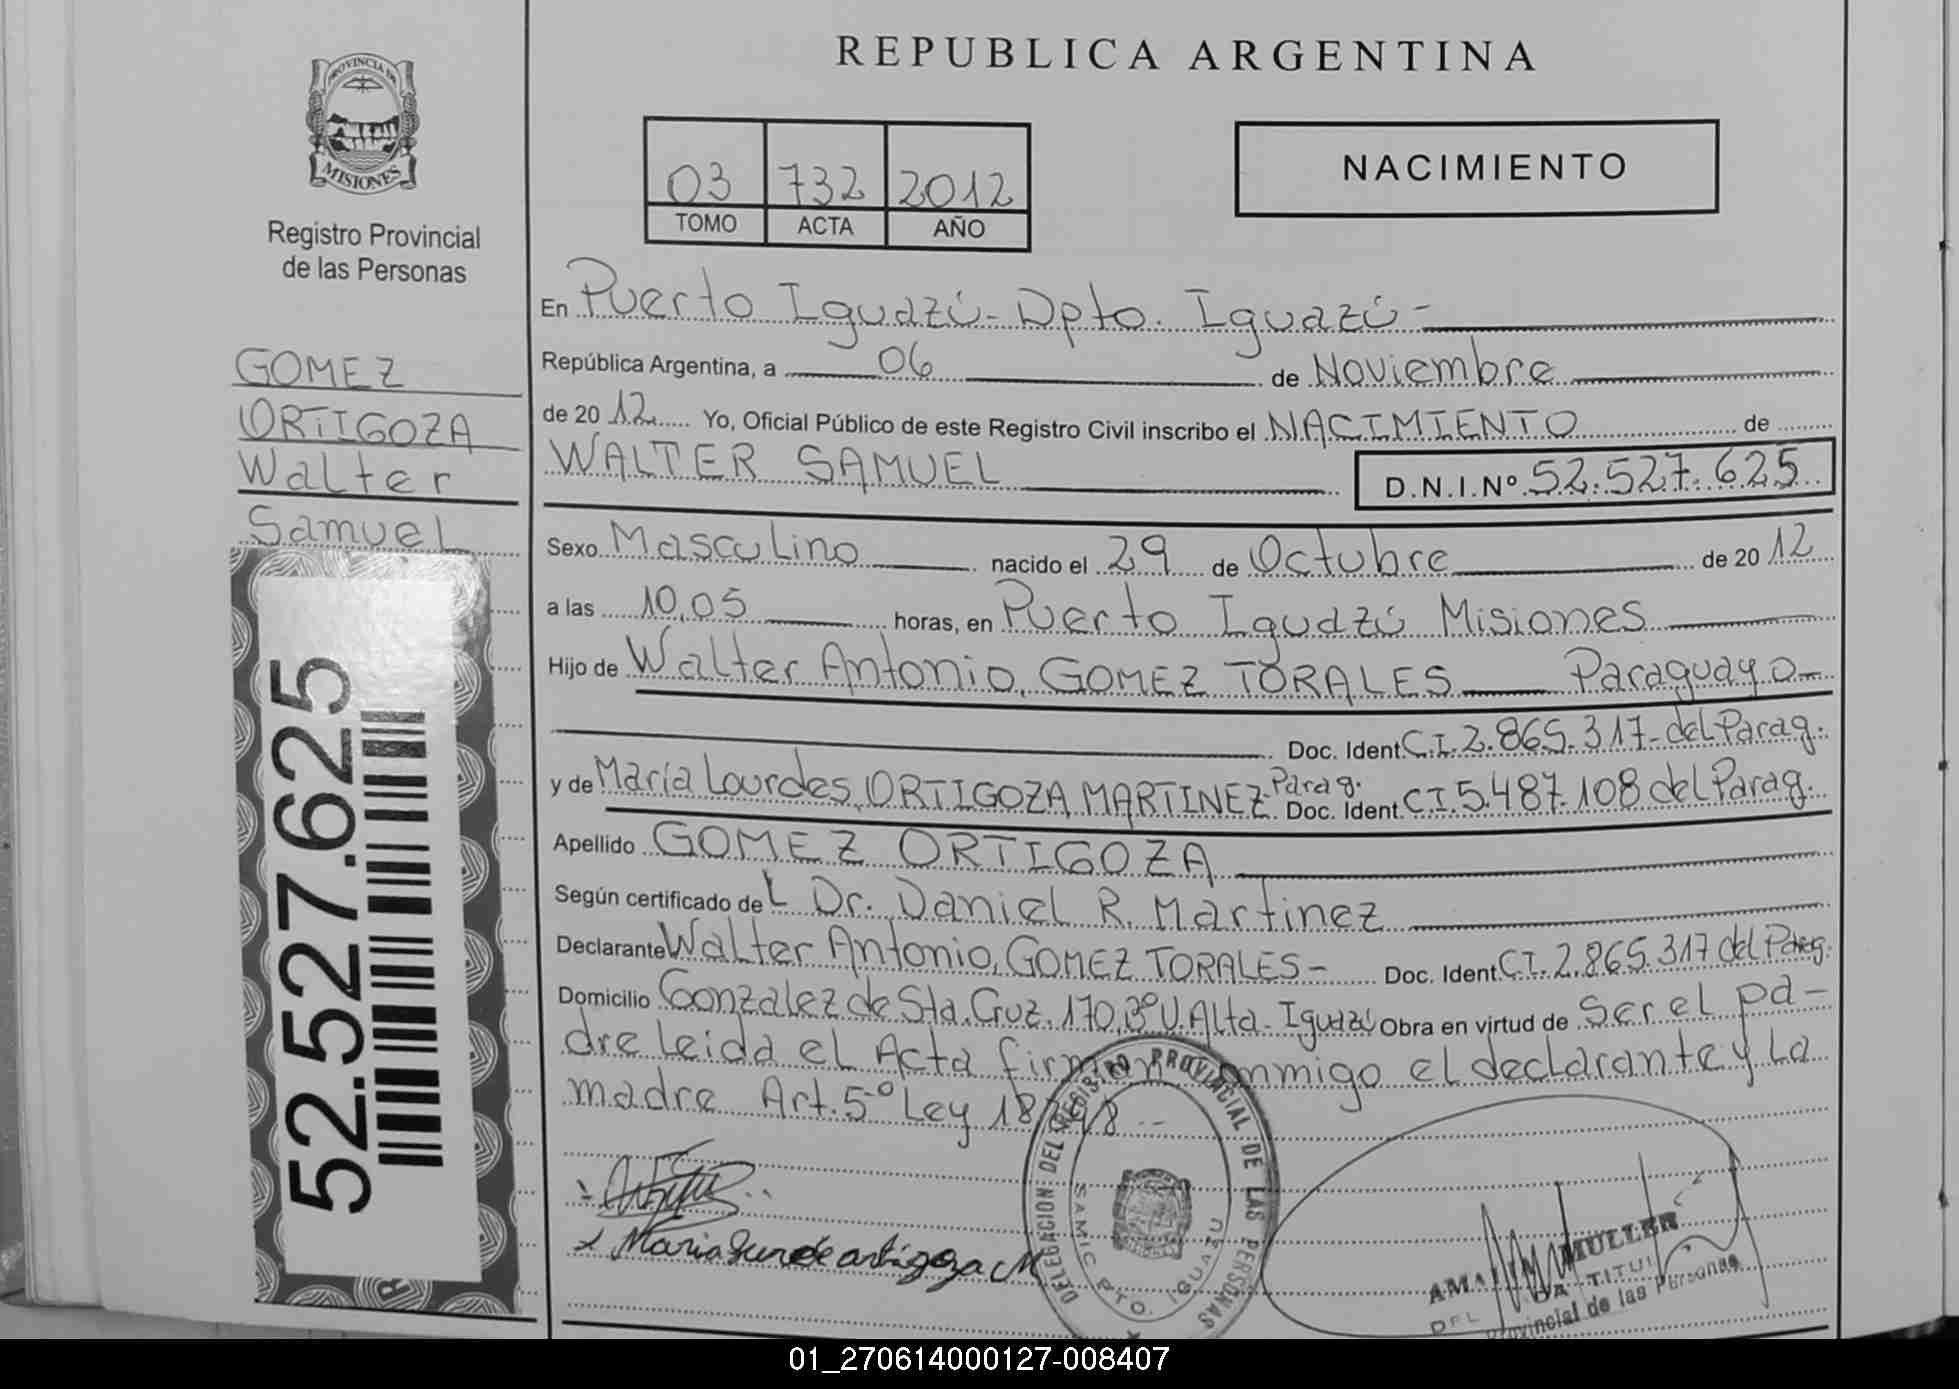 REPUBLICA ARGENTINA
PROVINCIA DE
MISIONES
Registro Provincial
de las Personas
03 732 2012
TOMO ACTA AÑO
NACIMIENTO
GOMEZ
ORTIGOZA
Walter
Samuel
52.527.625
En Puerto Iguazú - Dpto. Iguazú -
República Argentina, a 06 de Noviembre
de 20 12 Yo, Oficial Público de este Registro Civil inscribo el NACIMIENTO de
WALTER SAMUEL D.N.I.Nº 52.527.625
Sexo Masculino nacido el 29 de Octubre de 20 12
a las 10,05 horas, en Puerto Iguazú Misiones
Hijo de Walter Antonio, GOMEZ TORALES Paraguayo
Doc. Ident. C.I. 2.865.317 - del Parag.
y de María Lourdes, ORTIGOZA MARTINEZ Parag. Doc. Ident. C.I. 5.487.108 del Parag.
Apellido GOMEZ ORTIGOZA
Según certificado de L Dr. Daniel R. Martinez
Declarante Walter Antonio, GOMEZ TORALES - Doc. Ident. C.I. 2.865.317 del Parag.
Domicilio Gonzalez de Sta. Cruz. 170, 3º U. Alta - Iguazú Obra en virtud de Ser el pa-
dre leida el Acta firman conmigo el declarante y la
madre Art. 5º Ley
DELEGACION DEL REGISTRO PROVINCIAL DE LAS PERSONAS
SAMIC PTO. IGUAZU
MULLER
Provincial de las Personas
01_270614000127-008407